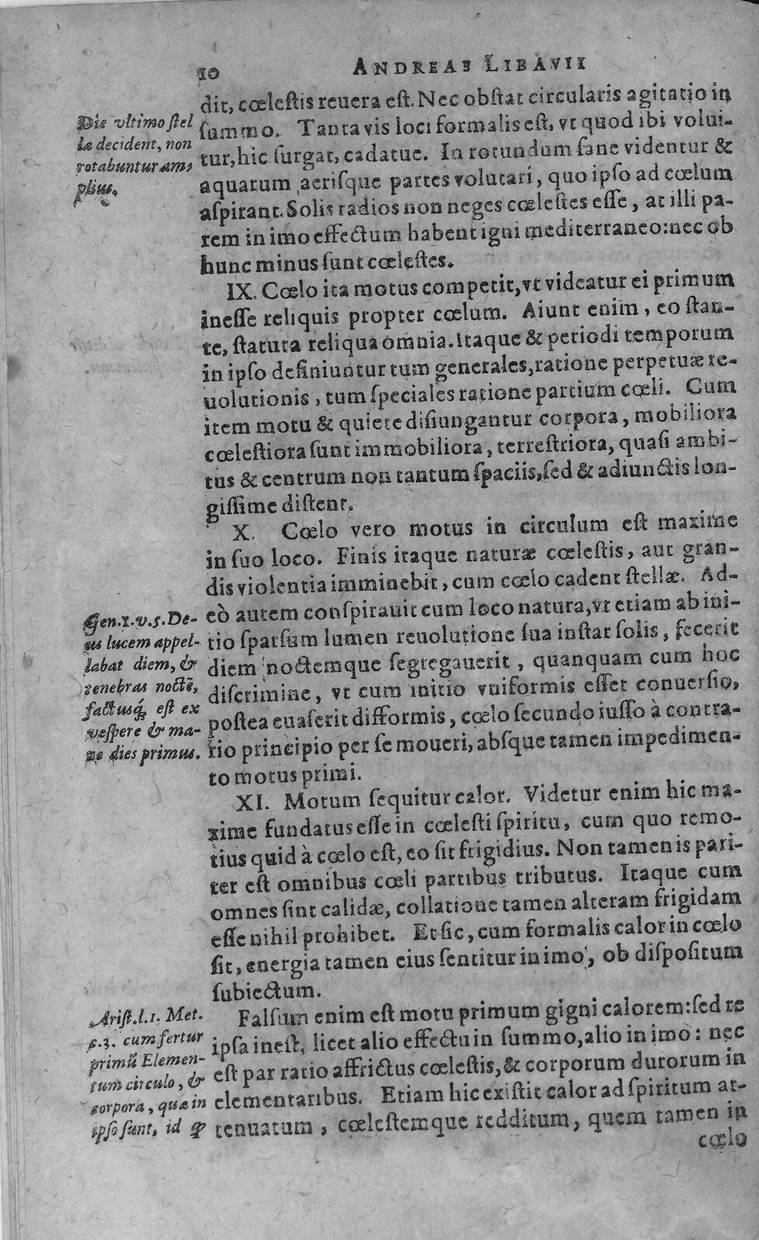 10 ANDREAE LIBAVII
dit, cœleſtis reuera eſt. Nec obſtat circularis agitatio in
ſummo. Tanta vis loci formalis eſt, vt quod ibi volui-
tur, hic ſurgat, cadatue. In rotundum ſane videntur &
aquarum aeriſque partes volutari, quo ipſo ad cœlum
aſpirant. Solis radios non neges cœleſtes eſſe, at illi pa-
rem in imo effectum habent igni mediterraneo: nec ob
hunc minus ſunt cœleſtes.
Die vltimo ſtel
læ decident, non
rotabuntur am-
plius.
IX. Cœlo ita motus competit, vt videatur ei primum
ineſſe reliquis propter cœlum. Aiunt enim, eo ſtan-
te, ſtatura reliqua omnia. Itaque & periodi temporum
in ipſo definiuntur tum generales, ratione perpetuæ re-
uolutionis, tum ſpeciales ratione partium cœli. Cum
item motu & quiete diſiungantur corpora, mobiliora
cœleſtiora ſunt immobiliora, terreſtriora, quaſi ambi-
tus & centrum non tantum ſpaciis, ſed & adiunctis lon-
giſſime diſtent.
X. Cœlo vero motus in circulum eſt maxime
in ſuo loco. Finis itaque naturæ cœleſtis, aut gran-
dis violentia imminebit, cum cœlo cadent ſtellæ. Ad-
eò autem conſpirauit cum loco natura, vt etiam ab ini-
tio ſparſum lumen reuolutione ſua inſtar ſolis, fecerit
diem noctemque ſegregauerit, quanquam cum hoc
diſcrimine, vt cum initio vniformis eſſet conuerſio,
poſtea euaſerit difformis, cœlo ſecundo iuſſo à contra-
rio principio per ſe moueri, abſque tamen impedimen-
to motus primi.
Gen. 1. v. 5. De-
us lucem appel-
labat diem, &
tenebras noctē,
factusq́ eſt ex
veſpere & ma-
ne dies primus.
XI. Motum ſequitur calor. Videtur enim hic ma-
xime fundatus eſſe in cœleſti ſpiritu, cum quo remo-
tius quid à cœlo eſt, eo ſit frigidius. Non tamen is pari-
ter eſt omnibus cœli partibus tributus. Itaque cum
omnes ſint calidæ, collatione tamen alteram frigidam
eſſe nihil prohibet. Et ſic, cum formalis calor in cœlo
ſit, energia tamen eius ſentitur in imo, ob diſpoſitum
ſubiectum.
Falſum enim eſt motu primum gigni calorem: ſed re
ipſa ineſt, licet alio effectu in ſummo, alio in imo: nec
eſt par ratio affrictus cœleſtis, & corporum durorum in
elementaribus. Etiam hic exiſtit calor ad ſpiritum at-
tenuatum, cœleſtemque redditum, quem tamen in
Ariſt. l. 1. Met.
c. 3. cum fertur
primū Elemen-
tum circulo, &
corpora, quæ in
ipſo ſunt, id ꝙ
cœlo